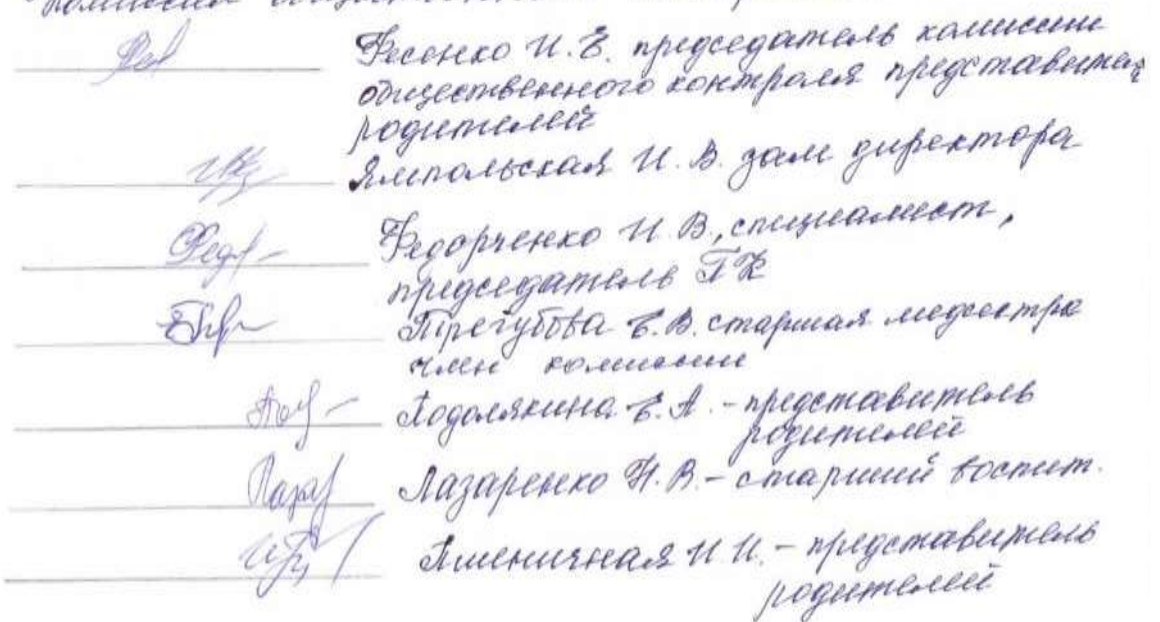 Фесенко И.Е. председатель комиссии
общественного контроля представитель
родителей
Ямпольская И.В. зам директора
Федорченко И.В., специалист,
председатель ПК
Трегубова Е.В. старшая медсестра
член комиссии
Подолякина Е.А. - представитель
родителей
Лазаренко Н.В. - старший воспит.
Пшеничная И.И. - представитель
родителей